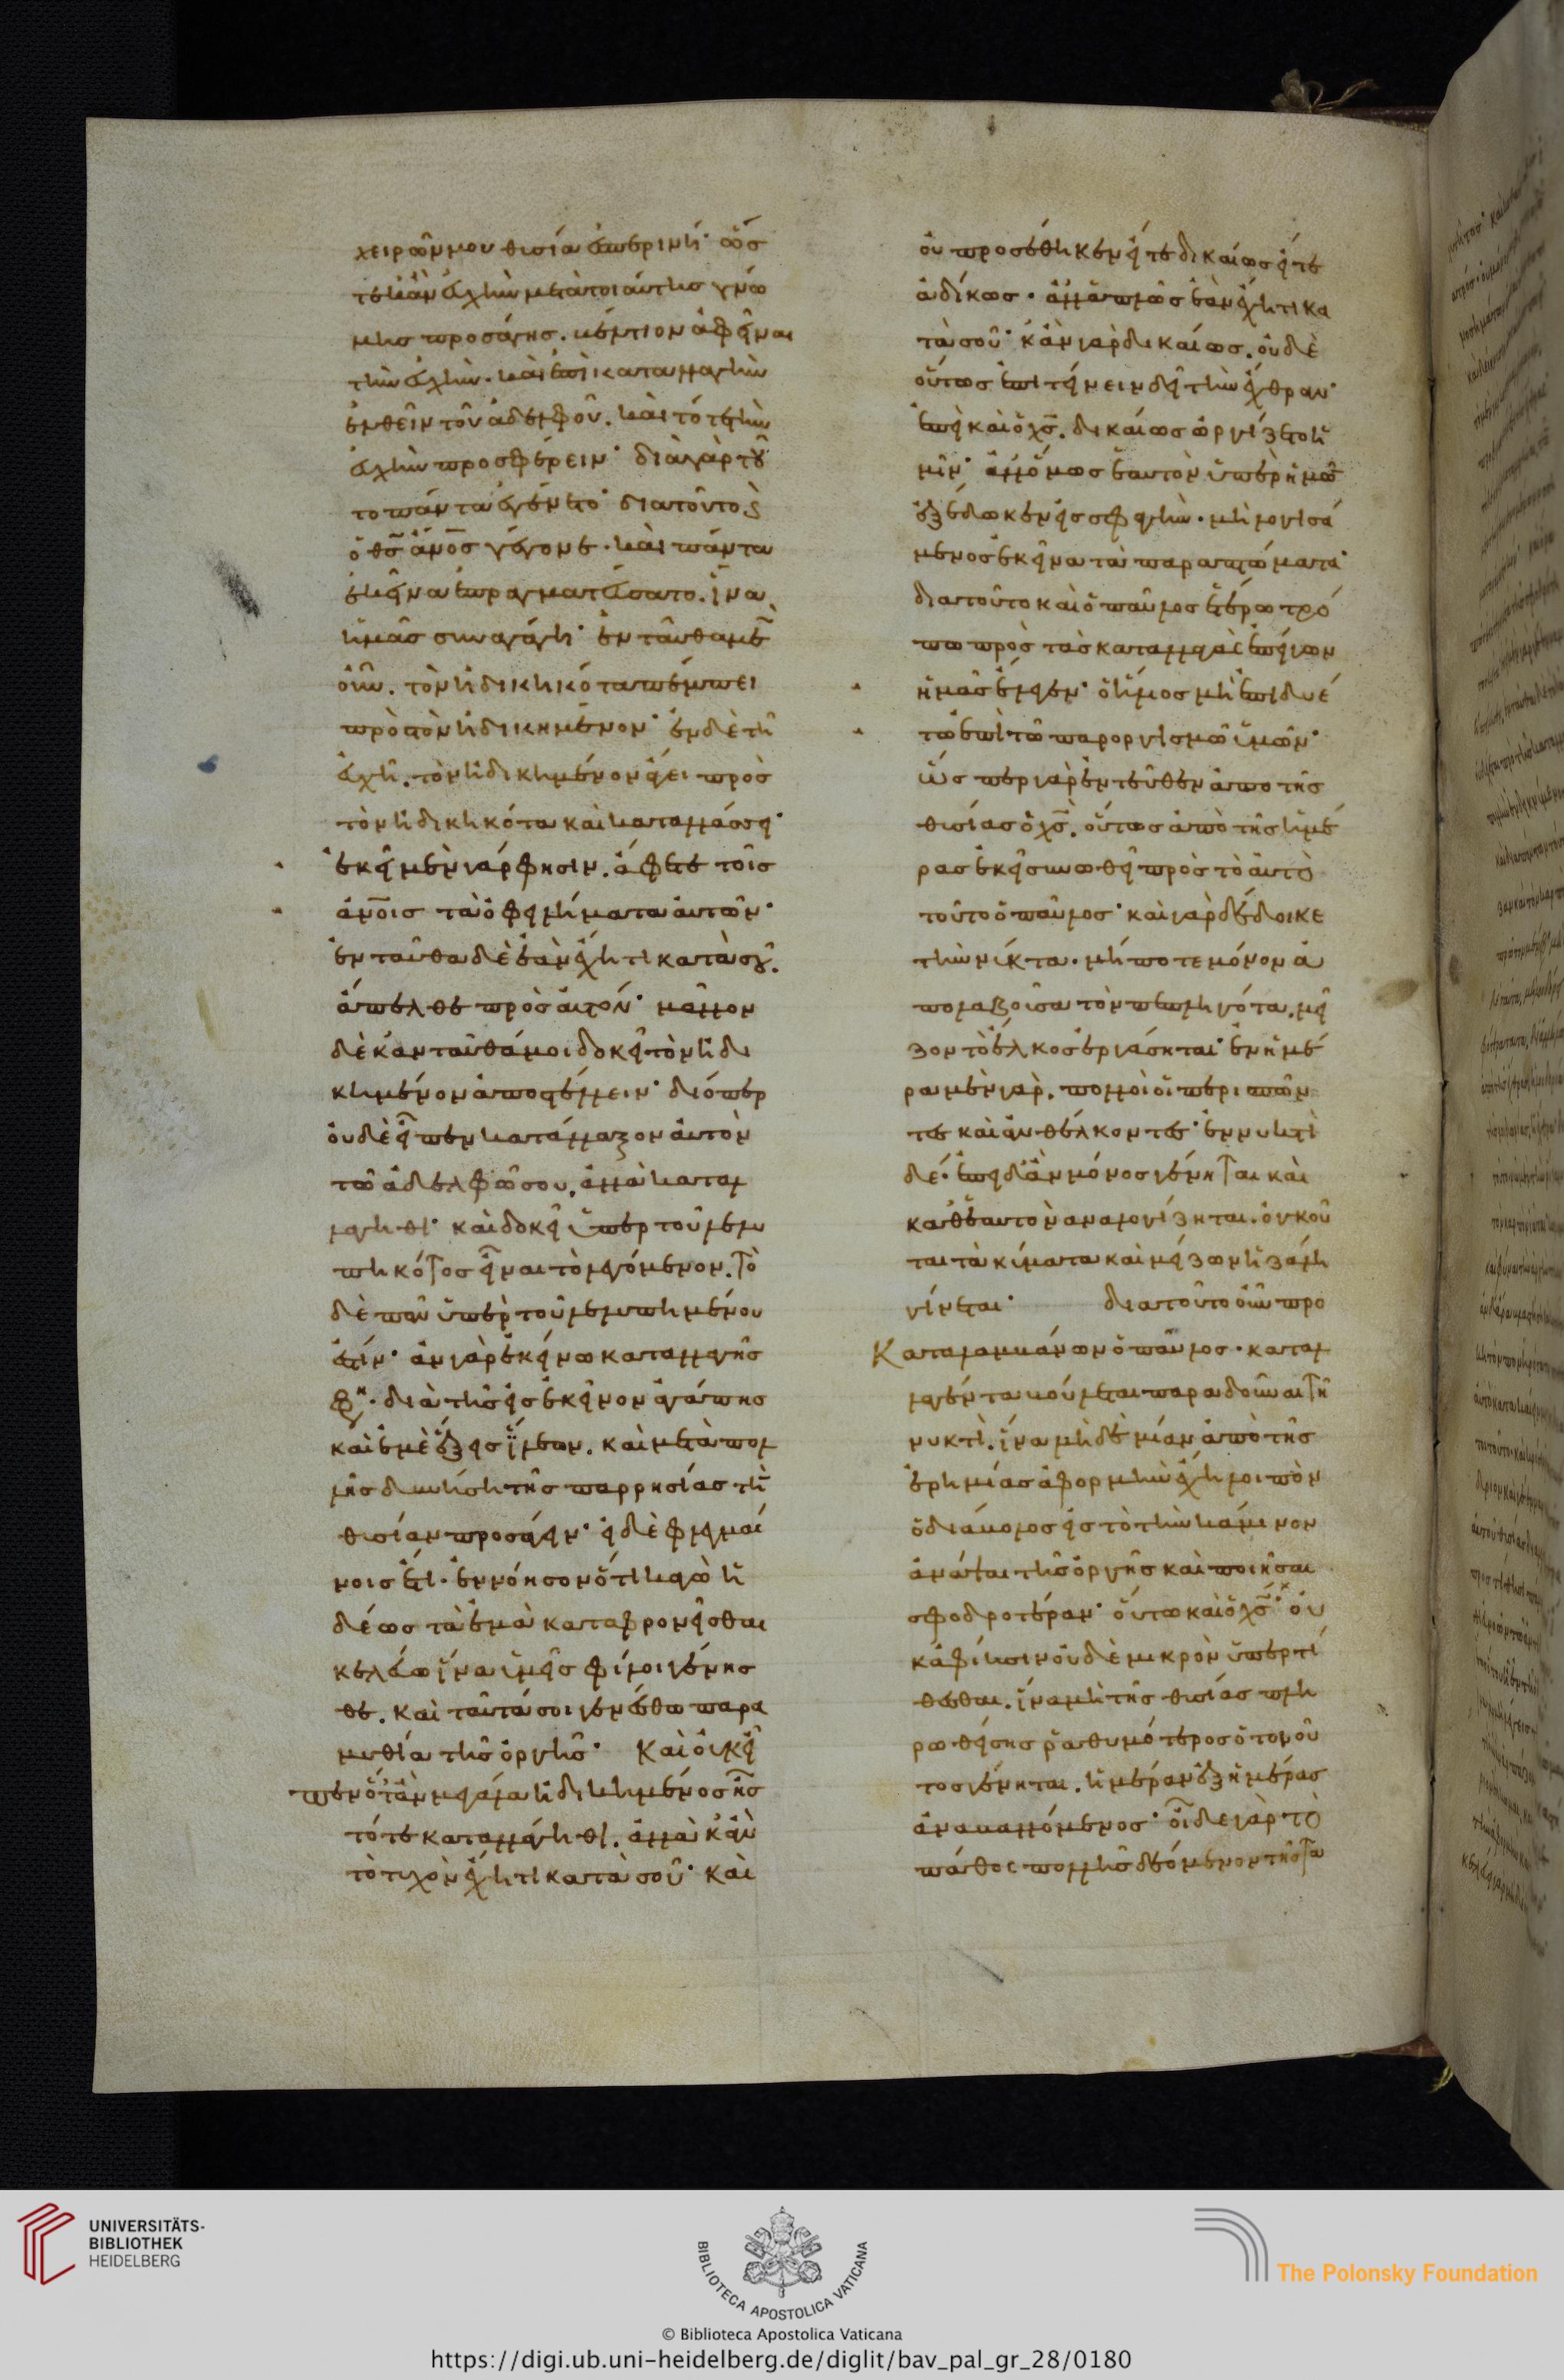 χειρῶν μου θυσία ἑσπερινή· ὥς
τε κἂν εὐχὴν μετὰ τοιαύτης γνώ
μης προσάγης. βέλτιον ἀφεῖναι
τὴν εὐχὴν. καὶ ἐπὶ καταλλαγὴν
ἐλθεῖν τοῦ ἀδελφοῦ. καὶ τότε τὴν
εὐχὴν προσφέρειν· διὰ γὰρ τοῦ
το πάντα ἐγένετο· διὰ τοῦτο καὶ
ὁ θς ἄνος γέγονε. καὶ πάντα
ἐκεῖνα ἐπραγματεύσατο. ἵνα
ἡμᾶς συναγάγη· ἐνταῦθα μὲν
οὖν. τὸν ἠδικηκότα πέμπει
πρὸς τὸν ἠδικημένον· ἐν δὲ τῆ
εὐχῆ. τὸν ἠδικημένον ἄγει πρὸς
τὸν ἠδικηκότα καὶ καταλλάσσει·
ἐκεῖ μὲν γάρ φησιν. ἄφετε τοῖς
ἀνοις τὰ ὀφειλήματα αὐτῶν·
ἐνταῦθα δὲ ἐὰν ἔχη τι κατὰ σοῦ.
ἄπελθε πρὸς αὐτόν· μᾶλλον
δὲ κἀνταῦθά μοι δοκεῖ τὸν ἠδι
κημένον ἀποστέλλειν· διόπερ
οὐδὲ εἶπεν κατάλλαξον αὐτὸν
τῶ ἀδελφῶ σου. ἀλλὰ καταλ
λάγηθι· καὶ δοκεῖ ὑπὲρ τοῦ λελυ
πηκότος εἶναι τὸ λεγόμενον. τὸ
δὲ πᾶν ὑπὲρ τοῦ λελυπημένου
ἐστίν· ἂν γὰρ ἐκείνω καταλλαγῆς
φη. διὰ τῆς εἰς ἐκεῖνον ἀγάπης
καὶ ἐμὲ ἕξεις ἵλεων. καὶ μετὰ πολ
λῆς δυνήση τῆς παρρησίας τὴν
θυσίαν προσάγειν· εἰ δὲ φλεγμαί
νοις ἔτι. ἐννόησον ὅτι κἀγὼ ἡ
δέως τὰ ἐμὰ καταφρονεῖσθαι
κελεύω ἵνα ὑμεῖς φίλοι γένησ
θε. καὶ ταῦτά σοι γενέσθω παρα
μυθία τῆς ὀργῆς· Καὶ οὐκ εἶ
πεν ὅταν μεγάλα ἠδικημένος ἦς
τότε καταλλάγηθι. ἀλλὰ κἂν
τὸ τυχὸν ἔχη τι κατὰ σοῦ· καὶ
οὐ προσέθηκεν εἴτε δικαίως εἴτε
ἀδίκως. ἀλλ' ἁπλῶς ἐὰν ἔχη τι κα
τὰ σοῦ· κἂν γὰρ δικαίως. οὐδὲ
οὕτως ἐπιτείνειν δεῖ τὴν ἔχθραν·
ἐπεὶ καὶ ὁ χς. δικαίως ὠργίζετο ἡ
μῖν· ἀλλ' ὅμως ἑαυτὸν ὑπὲρ ἡμῶν
ἐξέδωκεν εἰς σφαγὴν. μὴ λογισά
μενος ἐκεῖνα τὰ παραπτώματα·
διατοῦτο καὶ ὁ παῦλος ἑτέρω τρό
πω πρὸς τὰς καταλλαγὰς ἐπείγων
ἡμᾶς ἔλεγεν· ὁ ἥλιος μὴ ἐπιδυέ
τω ἐπὶ τῶ παροργισμῶ ὑμῶν·
ὥσπερ γὰρ ἐντεῦθεν ἀπο τῆς
θυσίας ὁ χς. οὕτως ἀπὸ τῆς ἡμέ
ρας ἐκεῖ συνωθεῖ πρὸς τὸ αὐτὸ
τοῦτο ὁ παῦλος· καὶ γὰρ δέδοικε
τὴν νύκτα. μήποτε μόνον ἀ
πολαβοῦσα τὸν πεπληγότα. μεῖ
ζον τὸ ἕλκος ἐργάσηται· ἐν ἡμέ
ρα μὲν γὰρ. πολλοὶ οἱ περισπῶν
τες καὶ ἀνθέλκοντες· ἐν νυκτὶ
δέ. ἐπειδὰν μόνος γένηται καὶ
καθ' ἑαυτὸν ἀναλογίζηται. ὀγκοῦ
ται τὰ κύματα καὶ μείζων ἡ ζάλη
γίνεται· διατοῦτο οὖν προ
Καταλαμβάνων ὁ παῦλος. καταλ
λαγέντα βούλεται παραδοῦναι τῆ
νυκτὶ. ἵνα μηδὲ μίαν ἀπὸ τῆς
ἐρημίας ἀφορμὴν ἔχη λοιπὸν
ὁ διάβολος εἰς τὸ τὴν κάμινον
ἀνάψαι τῆς ὀργῆς καὶ ποιῆσαι
σφοδροτέραν· οὕτω καὶ ὁ χς· οὐ
κ ἀφίησιν οὐδὲ μικρὸν ὑπερτί
θεσθαι. ἵνα μὴ τῆς θυσίας πλη
ρωθείσης ῥαθυμότερος ὁ τοιοῦ
τος γένηται. ἡμέραν ἐξ ἡμέρας
ἀναβαλλόμενος· οἶδε γὰρ τὸ
πάθος πολλῆς δεόμενον τῆς τα
UNIVERSITÄTS-
BIBLIOTHEK
HEIDELBERG
BIBLIOTECA APOSTOLICA VATICANA
The Polonsky Foundation
© Biblioteca Apostolica Vaticana
https://digi.ub.uni-heidelberg.de/diglit/bav_pal_gr_28/0180